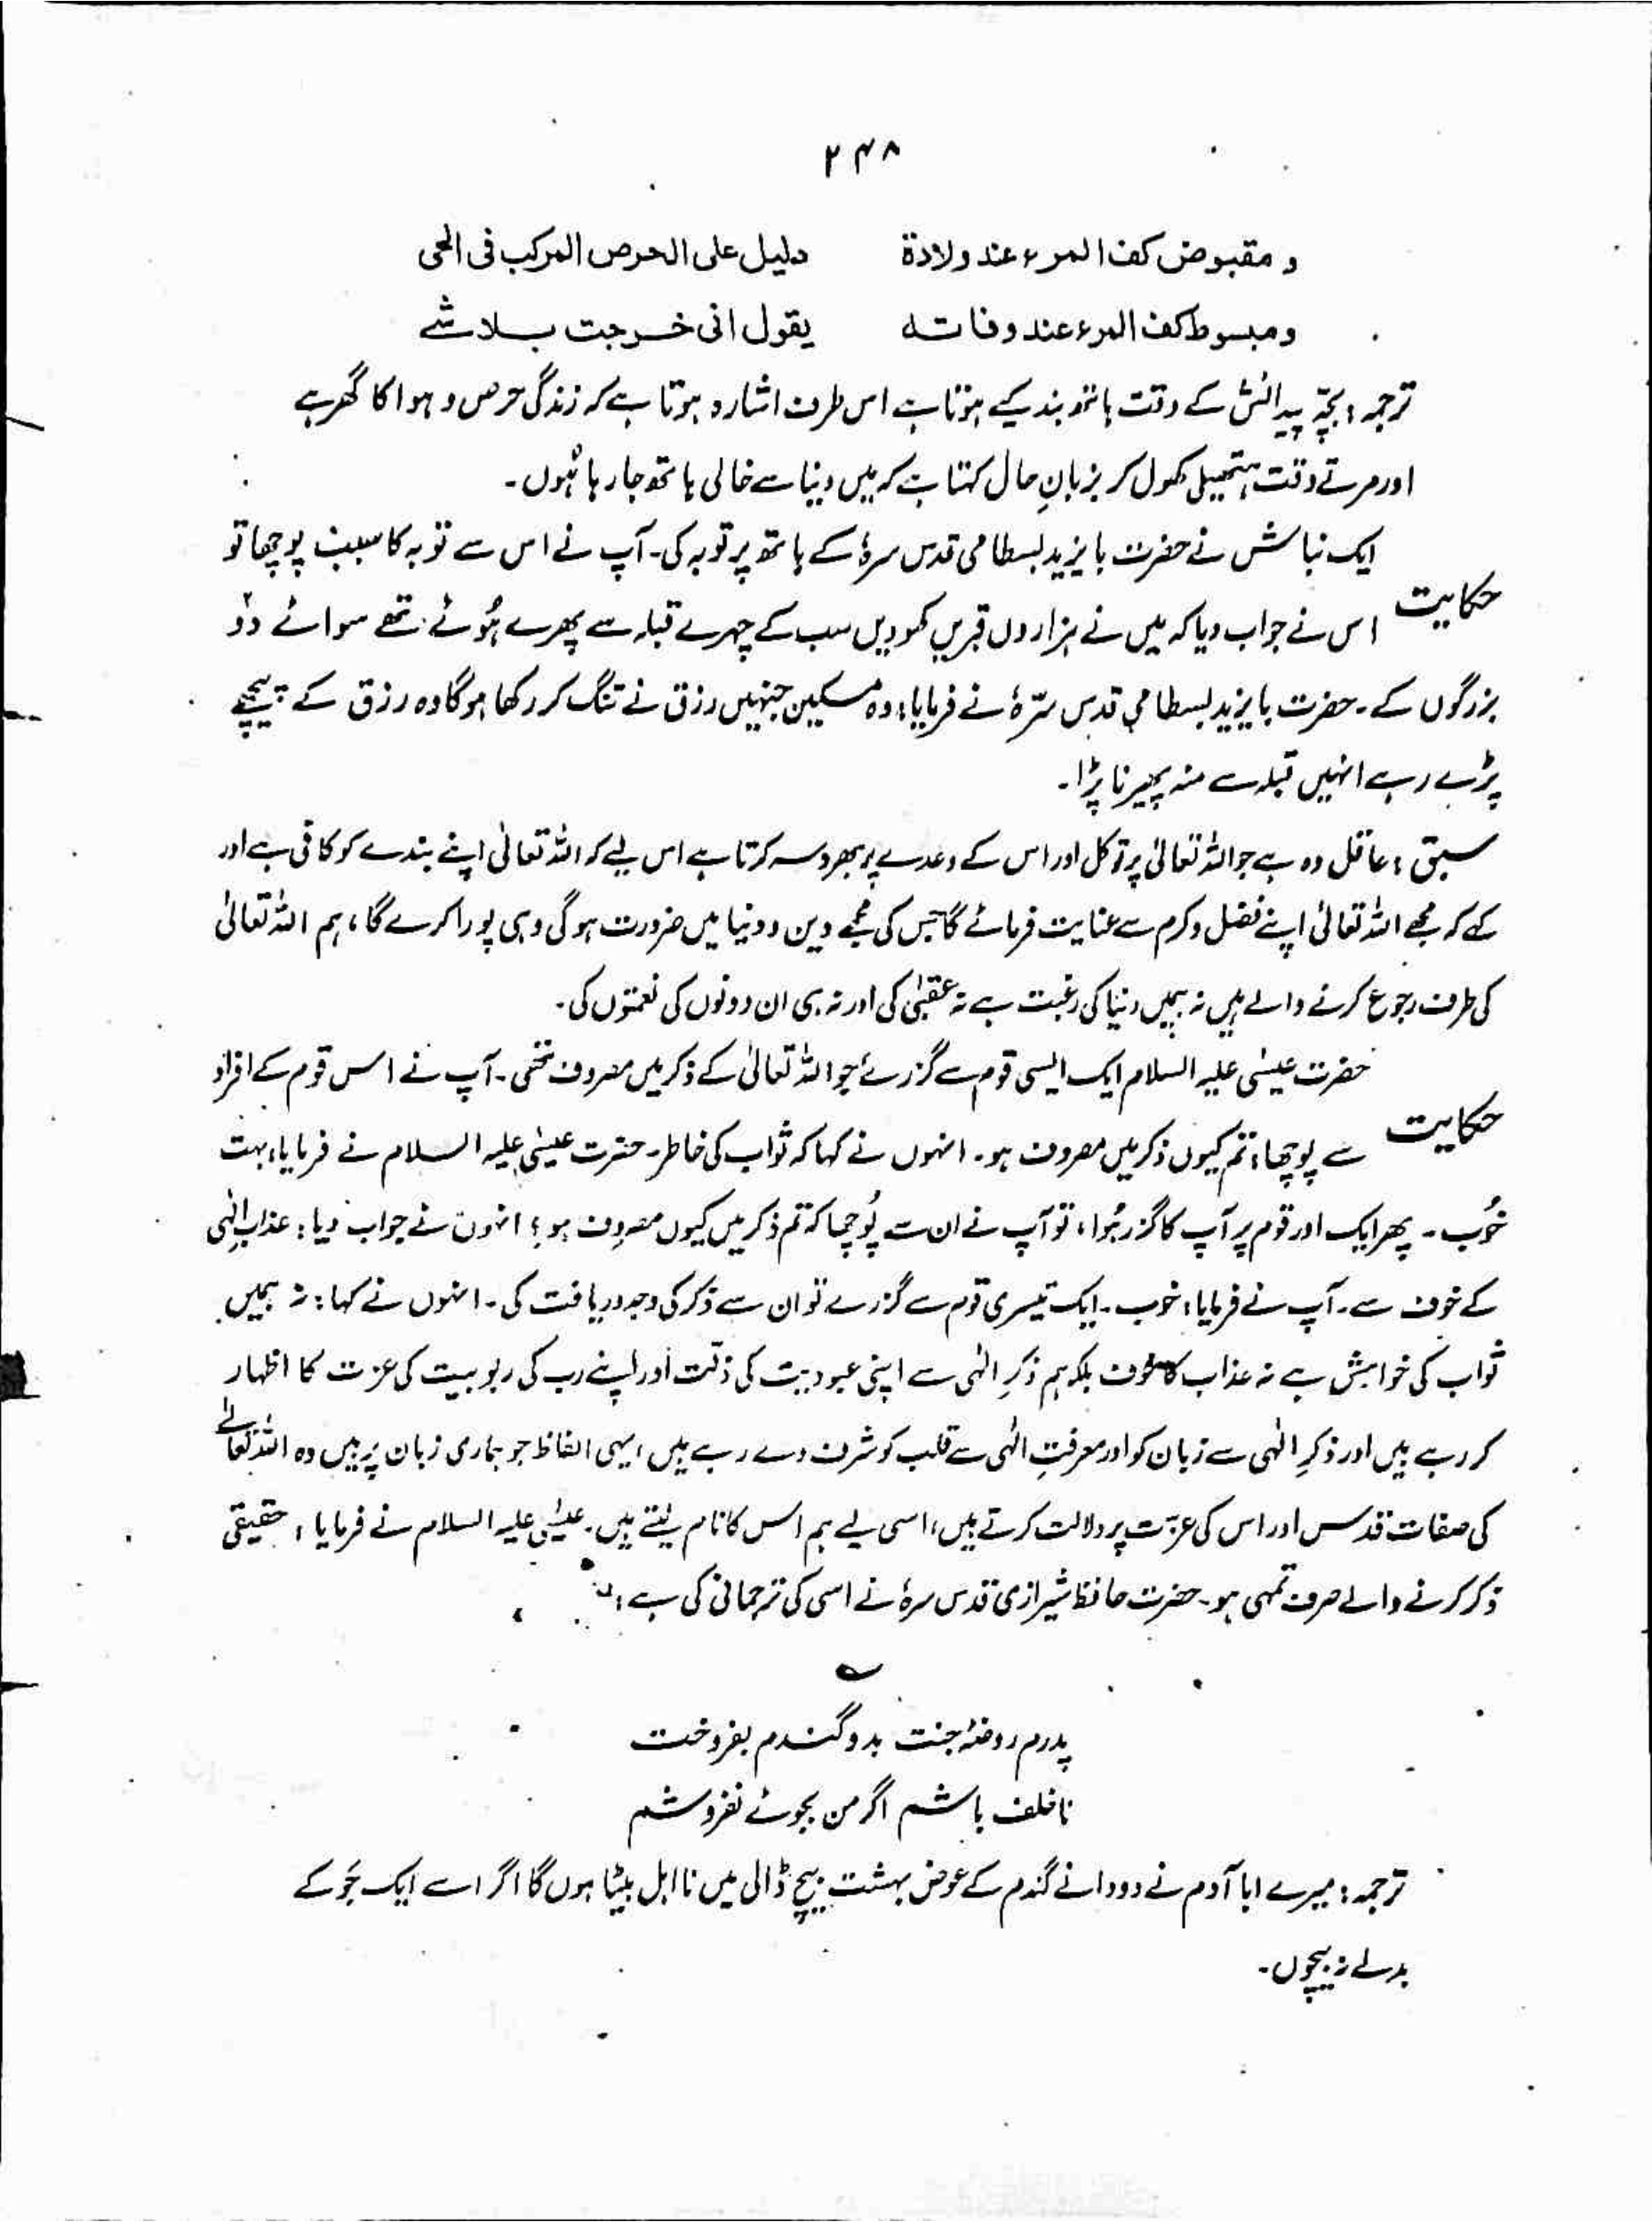 ۲۴۸
و مقبوض کف المرء عند ولادة دلیل علی الحرص المرکب فی الحی
ومبسوط کف المرء عند وفاته یقول انی خرجت بلا شے
ترجمہ: بچّہ پیدائش کے وقت ہاتھ بند کیے ہوتا ہے اس طرف اشارہ ہوتا ہے کہ زندگی حرص و ہوا کا گھر ہے
اور مرتے وقت ہتھیلی کھول کر بزبانِ حال کہتا ہے کہ میں دنیا سے خالی ہاتھ جا رہا ہُوں۔
ایک نباش نے حضرت بایزید بسطامی قدس سرہٗ کے ہاتھ پر توبہ کی۔ آپ نے اس سے توبہ کا سبب پوچھا تو
حکایت اس نے جواب دیا کہ میں نے ہزاروں قبریں کھودیں سب کے چہرے قبلہ سے پھرے ہُوئے تھے سوائے دوٗ
بزرگوں کے۔ حضرت بایزید بسطامی قدس سّرہٗ نے فرمایا: وہ مسکین جنہیں رزق نے تنگ کر رکھا ہوگا وہ رزق کے پیچھے
پڑے رہے انہیں قبلہ سے منہ پھیرنا پڑا۔
سبق: عاقل وہ ہے جو اللہ تعالیٰ پر توکل اور اس کے وعدے پر بھروسہ کرتا ہے اس لیے کہ اللہ تعالیٰ اپنے بندے کو کافی ہے اور
کہے کہ مجھے اللہ تعالیٰ اپنے فضل و کرم سے عنایت فرمائے گا جس کی مجھے دین و دنیا میں ضرورت ہوگی وہی پورا کرے گا، ہم اللہ تعالیٰ
کی طرف رجوع کرنے والے ہیں نہ ہمیں دنیا کی رغبت ہے نہ عقبیٰ کی اور نہ ہی ان دونوں کی نعمتوں کی۔
حضرت عیسٰی علیہ السلام ایک ایسی قوم سے گزرے جو اللہ تعالیٰ کے ذکر میں مصروف تھی۔ آپ نے اس قوم کے افراد
حکایت سے پوچھا: تم کیوں ذکر میں مصروف ہو۔ انہوں نے کہا کہ ثواب کی خاطر۔ حضرت عیسٰی علیہ السلام نے فرمایا: بہت
خُوب۔ پھر ایک اور قوم پر آپ کا گزر ہُوا، تو آپ نے ان سے پُوچھا کہ تم ذکر میں کیوں مصروف ہو؟ انہوں نے جواب دیا: عذابِ الٰہی
کے خوف سے۔ آپ نے فرمایا: خوب۔ ایک تیسری قوم سے گزرے تو ان سے ذکر کی وجہ دریافت کی۔ انہوں نے کہا: نہ ہمیں
ثواب کی خواہش ہے نہ عذاب کا خوف بلکہ ہم ذکرِ الٰہی سے اپنی عبودیت کی ذلّت اور اپنے رب کی ربوبیت کی عزت کا اظہار
کر رہے ہیں اور ذکرِ الٰہی سے زبان کو اور معرفتِ الٰہی سے قلب کو شرف دے رہے ہیں ایہی الفاظ جو ہماری زبان پر ہیں وہ اللہ تعالٰے
کی صفات قدس اور اس کی عزّت پر دلالت کرتے ہیں، اسی لیے ہم اس کا نام لیتے ہیں۔ عیسٰی علیہ السلام نے فرمایا: حقیقی
ذکر کرنے والے صرف تمہی ہو۔ حضرت حافظ شیرازی قدس سرہٗ نے اسی کی ترجمانی کی ہے:
پدرم روضۂ جنت بدو گندم بفروخت
ناخلف باشم اگر من بجوئے نفروشم
ترجمہ: میرے ابا آدم نے دو دانے گندم کے عوض بہشت بیچ ڈالی میں نااہل بیٹا ہوں گا اگر اسے ایک جَو کے
بدلے نہ بیچوں۔